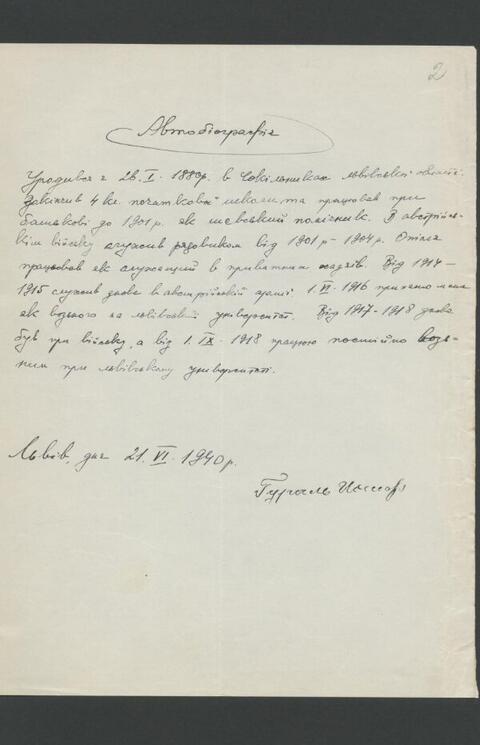 2
Автобіографія
Уродився я 26. I. 1880р. в Сокільниках львівської області.
Закінчив 4 кл. початкової школи та працював при
батькові до 1901 р. як шевський помічник. В австрійсь-
кім війську служив рядовиком від 1901 р - 1904 р. Опісля
працював як служащий в приватних Від 1914 -
1915 служив знова в австрійській армії. 1. VI - 1916 принято мене
як возного за львівський університет. Від 1917 - 1918 знова
був при війську, а від 1. IX - 1918 працюю постійно воз-
ним при львівському університеті.
Львів, дня 21. VI. 1940 р.
Гураль Йосиф